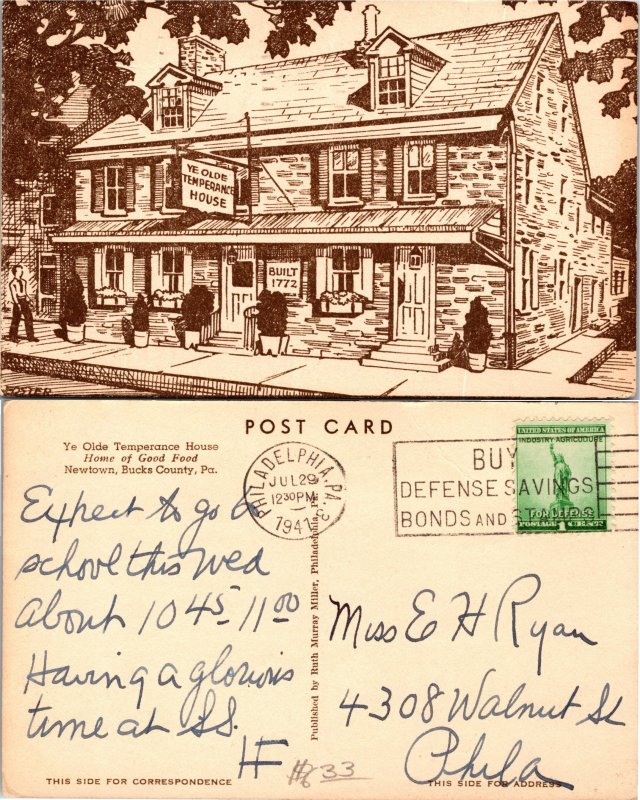 YE OLDE
TEMPERANCE
HOUSE
BUILT
1772
POST CARD
Ye Olde Temperance House
Home of Good Food
Newtown, Bucks County, Pa.
PHILADELPHIA, PA.
JUL 29
12 30 PM
1941
BUY
DEFENSE SAVINGS
BONDS AND
UNITED STATES OF AMERICA
INDUSTRY AGRICULTURE
FOR DEFENSE
POSTAGE
Expect to go to
school this Wed
about 10 45 11 00
Having a glorious
time at S.S.
HF
#633
Published by Ruth Murray Miller, Philadelphia, P
Miss E H Ryan
4308 Walnut St
Phila
THIS SIDE FOR CORRESPONDENCE
THIS SIDE FOR ADDRESS